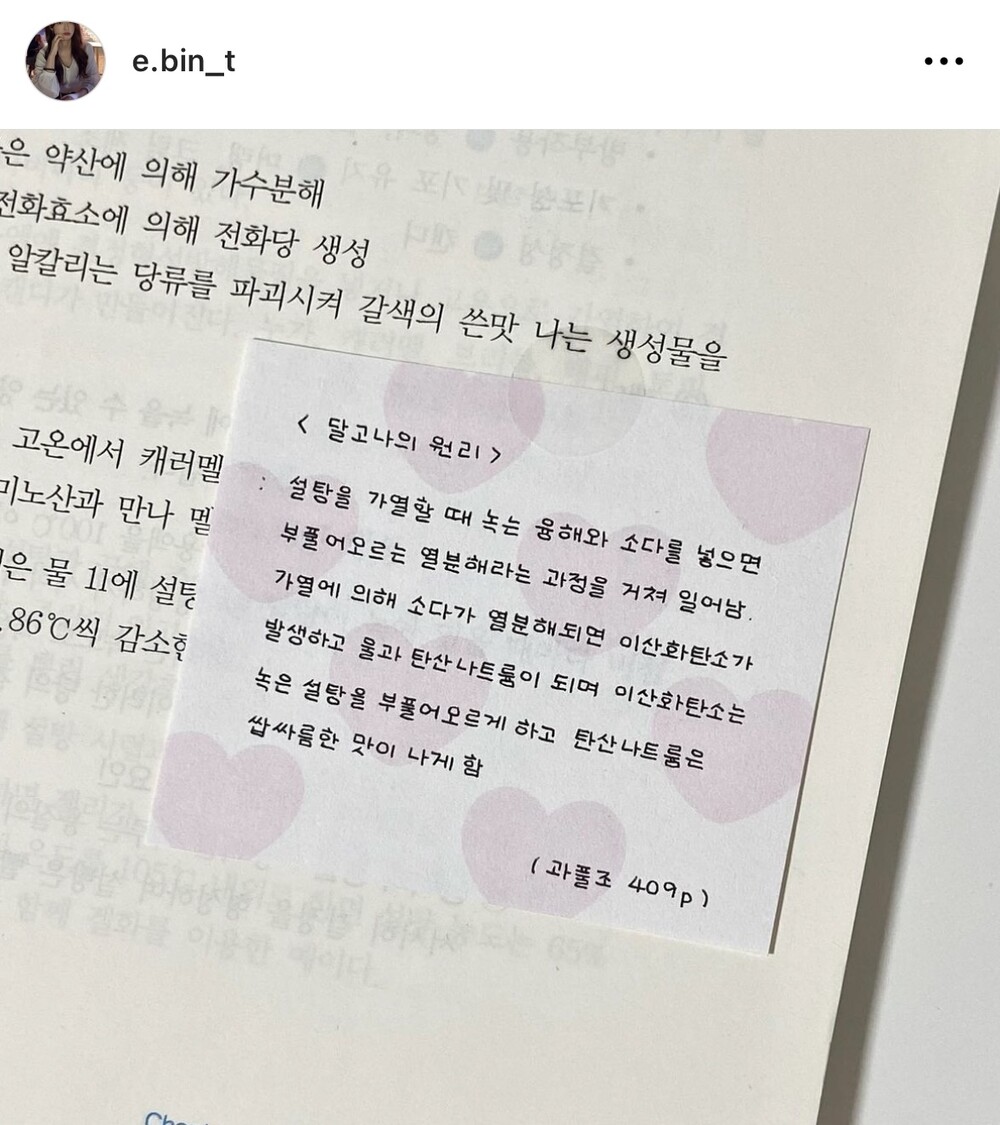 e.bin_t
은 약산에 의해 가수분해
전화효소에 의해 전화당 생성
알칼리는 당류를 파괴시켜 갈색의 쓴맛 나는 생성물을
고온에서 캐러멜
미노산과 만나 멜
은 물 1l에 설탕
.86℃씩 감소한
< 달고나의 원리 >
: 설탕을 가열할 때 녹는 융해와 소다를 넣으면
부풀어오르는 열분해라는 과정을 거쳐 일어남.
가열에 의해 소다가 열분해되면 이산화탄소가
발생하고 물과 탄산나트륨이 되며 이산화탄소는
녹은 설탕을 부풀어오르게 하고 탄산나트륨은
쌉싸름한 맛이 나게 함
(과풀조 409p)